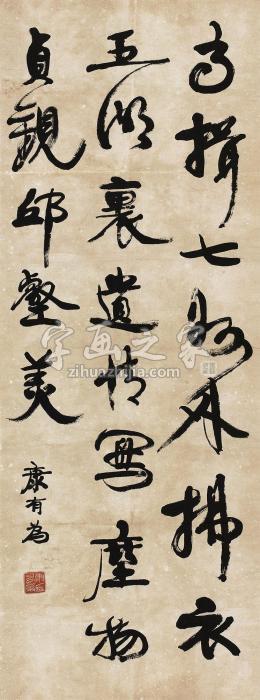 高揖七州外拂衣
五湖裏遺情寫塵物
貞觀邱壑美
康有為
字画之家
www.zihuazhijia.com